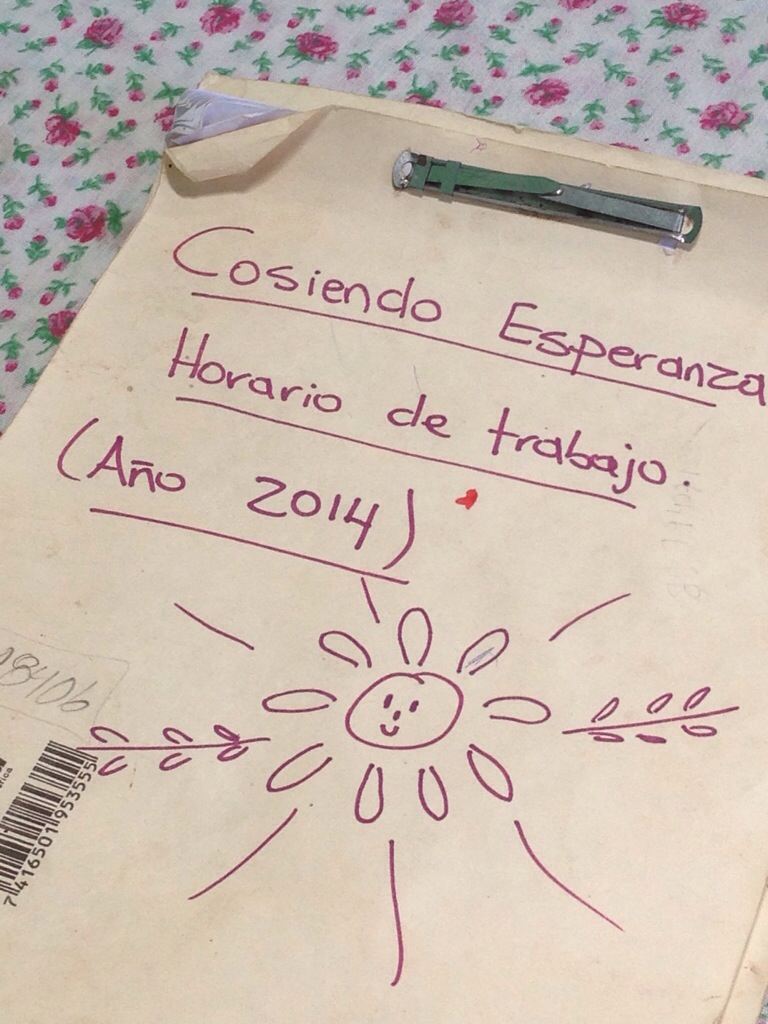 Cosiendo Esperanza
Horario de trabajo.
(Año 2014)
8406
7416501953555